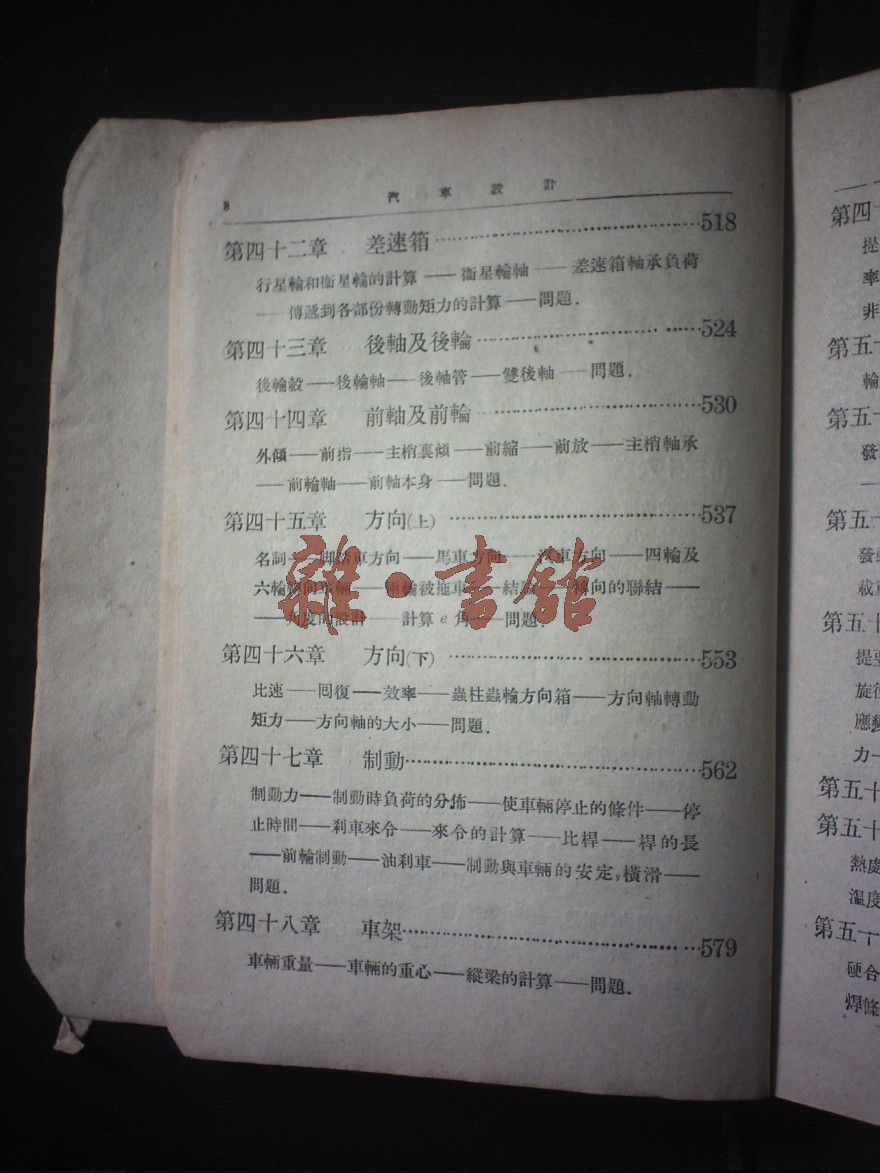 8
汽車設計
第四十二章 差速箱……518
行星輪和衞星輪的計算——衞星輪軸——差速箱軸承負荷
——傳遞到各部份轉動矩力的計算——問題.
第四十三章 後軸及後輪……524
後輪轂——後輪軸——後軸管——雙後軸——問題.
第四十四章 前軸及前輪……530
外傾——前指——主梢裏傾——前縮——前放——主梢軸承
——前輪軸——前軸本身——問題.
第四十五章 方向(上)……537
名詞——脚踏車方向——馬車方向——汽車方向——四輪及
六輪轉向車輛——車輪被拖車——結論——轉向的聯結——
——角度的設計——計算e角——問題.
第四十六章 方向(下)……553
比速——囘復——效率——蟲柱蟲輪方向箱——方向軸轉動
矩力——方向軸的大小——問題.
第四十七章 制動……562
制動力——制動時負荷的分佈——使車輛停止的條件——停
止時間——刹車來令——來令的計算——比桿——桿的長
——前輪制動——油刹車——制動與車輛的安定,橫滑——
問題.
第四十八章 車架……579
車輛重量——車輛的重心——縱梁的計算——問題.
雜·書舘
第四十
提
率
非
第五十
輪
第五十
發
第五十
發
載重
第五十
提要
旋
應
力—
第五十
第五十
熱處
溫度
第五十
硬合
焊條